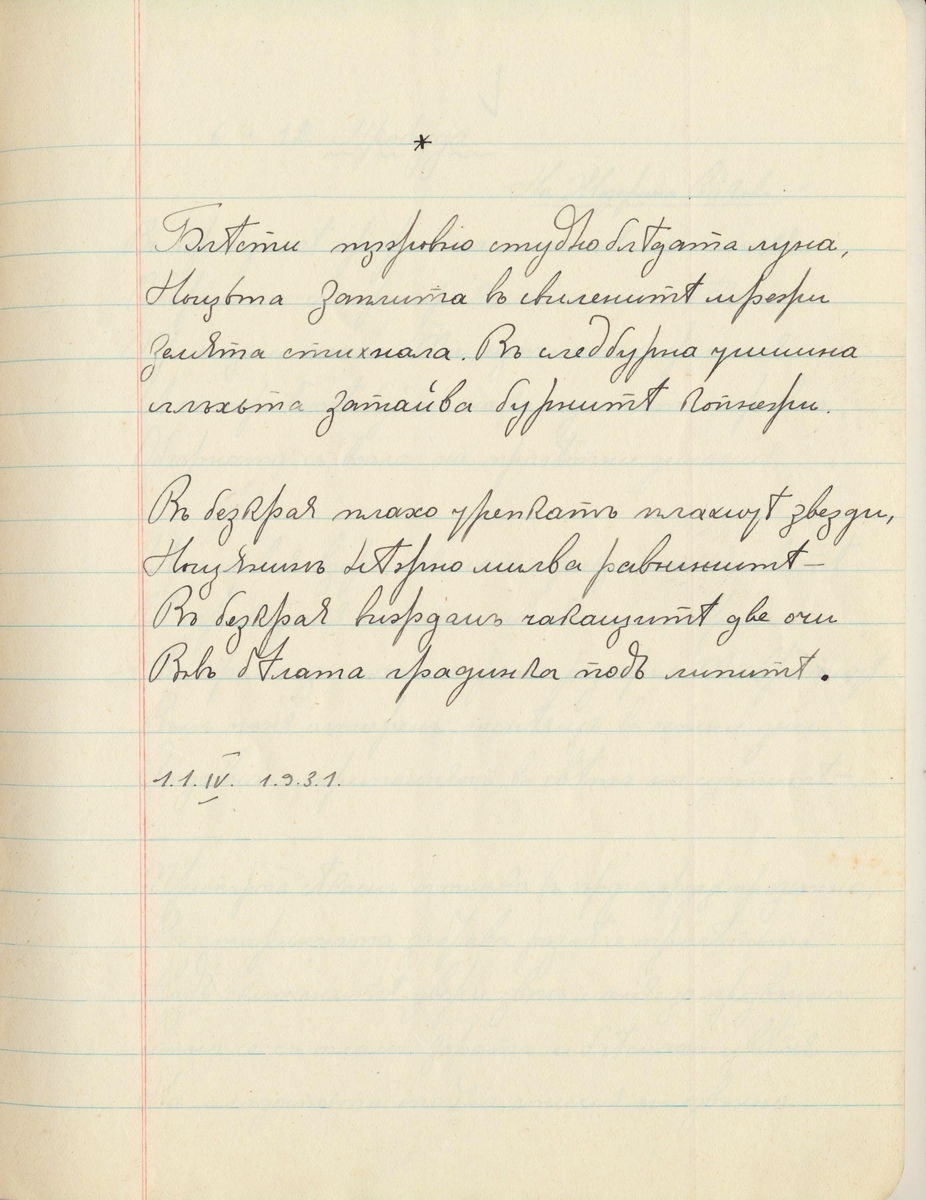 *
Блѣсти студно блѣдата луна,
Нощьта заплита в свиленитѣ мрежи
земята стихнала. В следбурна тишина
плътьта затаива бурнитѣ копнежи.
Въ безкрая плахо трепкатъ плахитѣ звезди,
Нощенемъ вѣтрно милва равнинитѣ –
Въ безкрая виждамъ чакащитѣ две очи
Във бѣлата градинка подъ липитѣ.
11.IV. 1931.